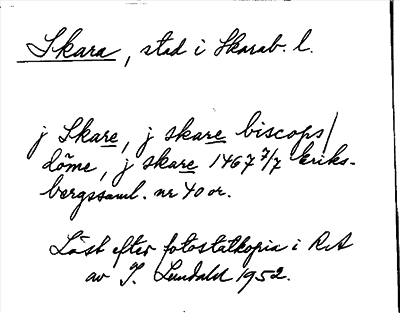 Skara, stad i Skarab. l.
j Skare, j skare biscops/
dõme, j skare 1467 7/7 Eriks-
bergssaml. nr 40 or.
Läst efter fotostatkopia i RA
av I. Lundahl 1952.